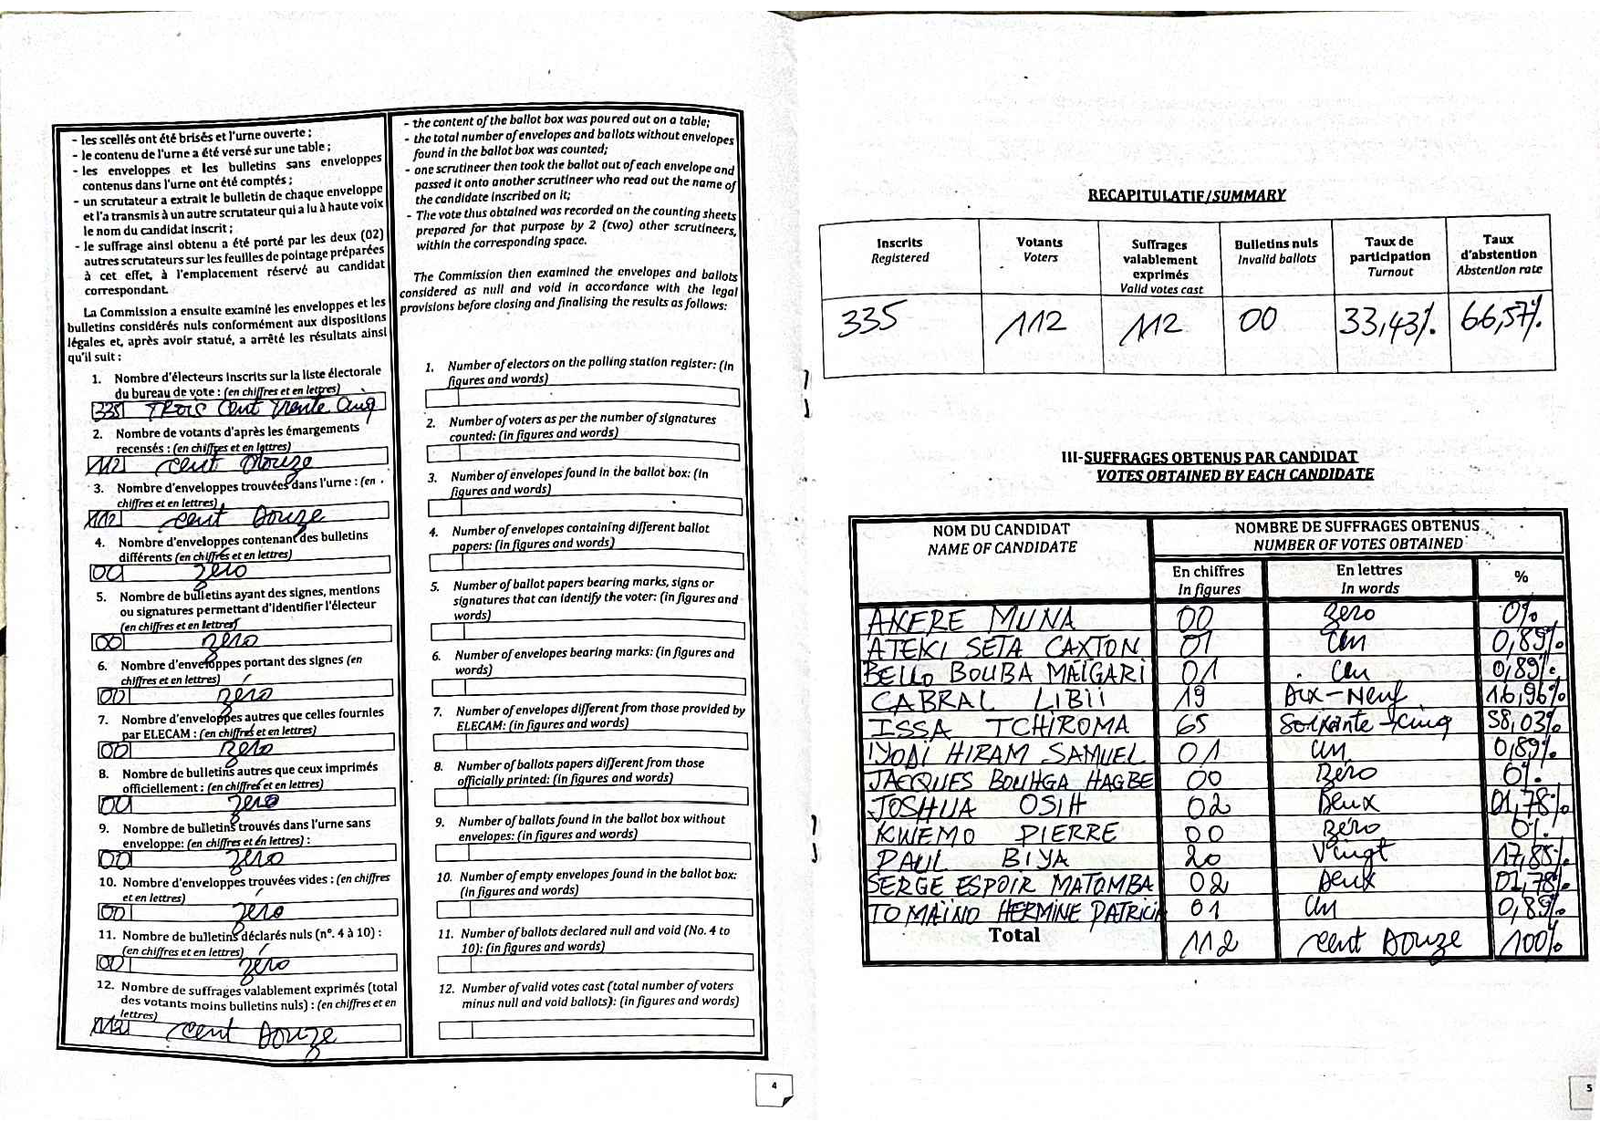 - les scellés ont été brisés et l'urne ouverte ;
- le contenu de l'urne a été versé sur une table ;
- les enveloppes et les bulletins sans enveloppes
contenus dans l'urne ont été comptés ;
- un scrutateur a extrait le bulletin de chaque enveloppe
et l'a transmis à un autre scrutateur qui a lu à haute voix
le nom du candidat inscrit ;
- le suffrage ainsi obtenu a été porté par les deux (02)
autres scrutateurs sur les feuilles de pointage préparées
à cet effet, à l'emplacement réservé au candidat
correspondant.
La Commission a ensuite examiné les enveloppes et les
bulletins considérés nuls conformément aux dispositions
légales et, après avoir statué, a arrêté les résultats ainsi
qu'il suit :
1. Nombre d'électeurs inscrits sur la liste électorale
du bureau de vote : (en chiffres et en lettres)
335 Trois Cent Trente Cinq
2. Nombre de votants d'après les émargements
recensés : (en chiffres et en lettres)
112 Cent Douze
3. Nombre d'enveloppes trouvées dans l'urne : (en
chiffres et en lettres)
112 Cent Douze
4. Nombre d'enveloppes contenant des bulletins
différents (en chiffres et en lettres)
00 zéro
5. Nombre de bulletins ayant des signes, mentions
ou signatures permettant d'identifier l'électeur
(en chiffres et en lettres)
00 zéro
6. Nombre d'enveloppes portant des signes (en
chiffres et en lettres)
00 zéro
7. Nombre d'enveloppes autres que celles fournies
par ELECAM : (en chiffres et en lettres)
00 zéro
8. Nombre de bulletins autres que ceux imprimés
officiellement : (en chiffres et en lettres)
00 zéro
9. Nombre de bulletins trouvés dans l'urne sans
enveloppe: (en chiffres et en lettres) :
00 zéro
10. Nombre d'enveloppes trouvées vides : (en chiffres
et en lettres)
00 zéro
11. Nombre de bulletins déclarés nuls (n°. 4 à 10) :
(en chiffres et en lettres)
00 zéro
12. Nombre de suffrages valablement exprimés (total
des votants moins bulletins nuls) : (en chiffres et en
lettres)
112 Cent Douze
- the content of the ballot box was poured out on a table;
- the total number of envelopes and ballots without envelopes
found in the ballot box was counted;
- one scrutineer then took the ballot out of each envelope and
passed it onto another scrutineer who read out the name of
the candidate inscribed on it;
- The vote thus obtained was recorded on the counting sheets
prepared for that purpose by 2 (two) other scrutineers,
within the corresponding space.
The Commission then examined the envelopes and ballots
considered as null and void in accordance with the legal
provisions before closing and finalising the results as follows:
1. Number of electors on the polling station register: (in
figures and words)
2. Number of voters as per the number of signatures
counted: (in figures and words)
3. Number of envelopes found in the ballot box: (In
figures and words)
4. Number of envelopes containing different ballot
papers: (in figures and words)
5. Number of ballot papers bearing marks, signs or
signatures that can identify the voter: (in figures and
words)
6. Number of envelopes bearing marks: (in figures and
words)
7. Number of envelopes different from those provided by
ELECAM: (in figures and words)
8. Number of ballots papers different from those
officially printed: (in figures and words)
9. Number of ballots found in the ballot box without
envelopes: (in figures and words)
10. Number of empty envelopes found in the ballot box:
(In figures and words)
11. Number of ballots declared null and void (No. 4 to
10): (in figures and words)
12. Number of valid votes cast (total number of voters
minus null and void ballots): (in figures and words)
4
RECAPITULATIF/SUMMARY
Inscrits Registered | Votants Voters | Suffrages valablement exprimés Valid votes cast | Bulletins nuls Invalid ballots | Taux de participation Turnout | Taux d'abstention Abstention rate
335 112 112 00 33,43% 66,57%
III-SUFFRAGES OBTENUS PAR CANDIDAT
VOTES OBTAINED BY EACH CANDIDATE
NOM DU CANDIDAT NOMBRE DE SUFFRAGES OBTENUS
NAME OF CANDIDATE NUMBER OF VOTES OBTAINED
En chiffres En lettres %
In figures In words
AKERE MUNA 00 Zéro 0%
ATEKI SETA CAXTON 01 Un 0,89%
BELLO BOUBA MAÏGARI 01 Un 0,89%
CABRAL LIBII 19 Dix-Neuf 16,96%
ISSA TCHIROMA 65 Soixante-cinq 58,03%
IYODI HIRAM SAMUEL 01 Un 0,89%
JACQUES BOUHGA HAGBE 00 Zéro 0%
JOSHUA OSIH 02 Deux 01,78%
KWEMO PIERRE 00 Zéro 0%
PAUL BIYA 20 Vingt 17,85%
SERGE ESPOIR MATOMBA 02 Deux 01,78%
TOMAÏNO HERMINE PATRICIA 01 Un 0,89%
Total 112 Cent Douze 100%
5